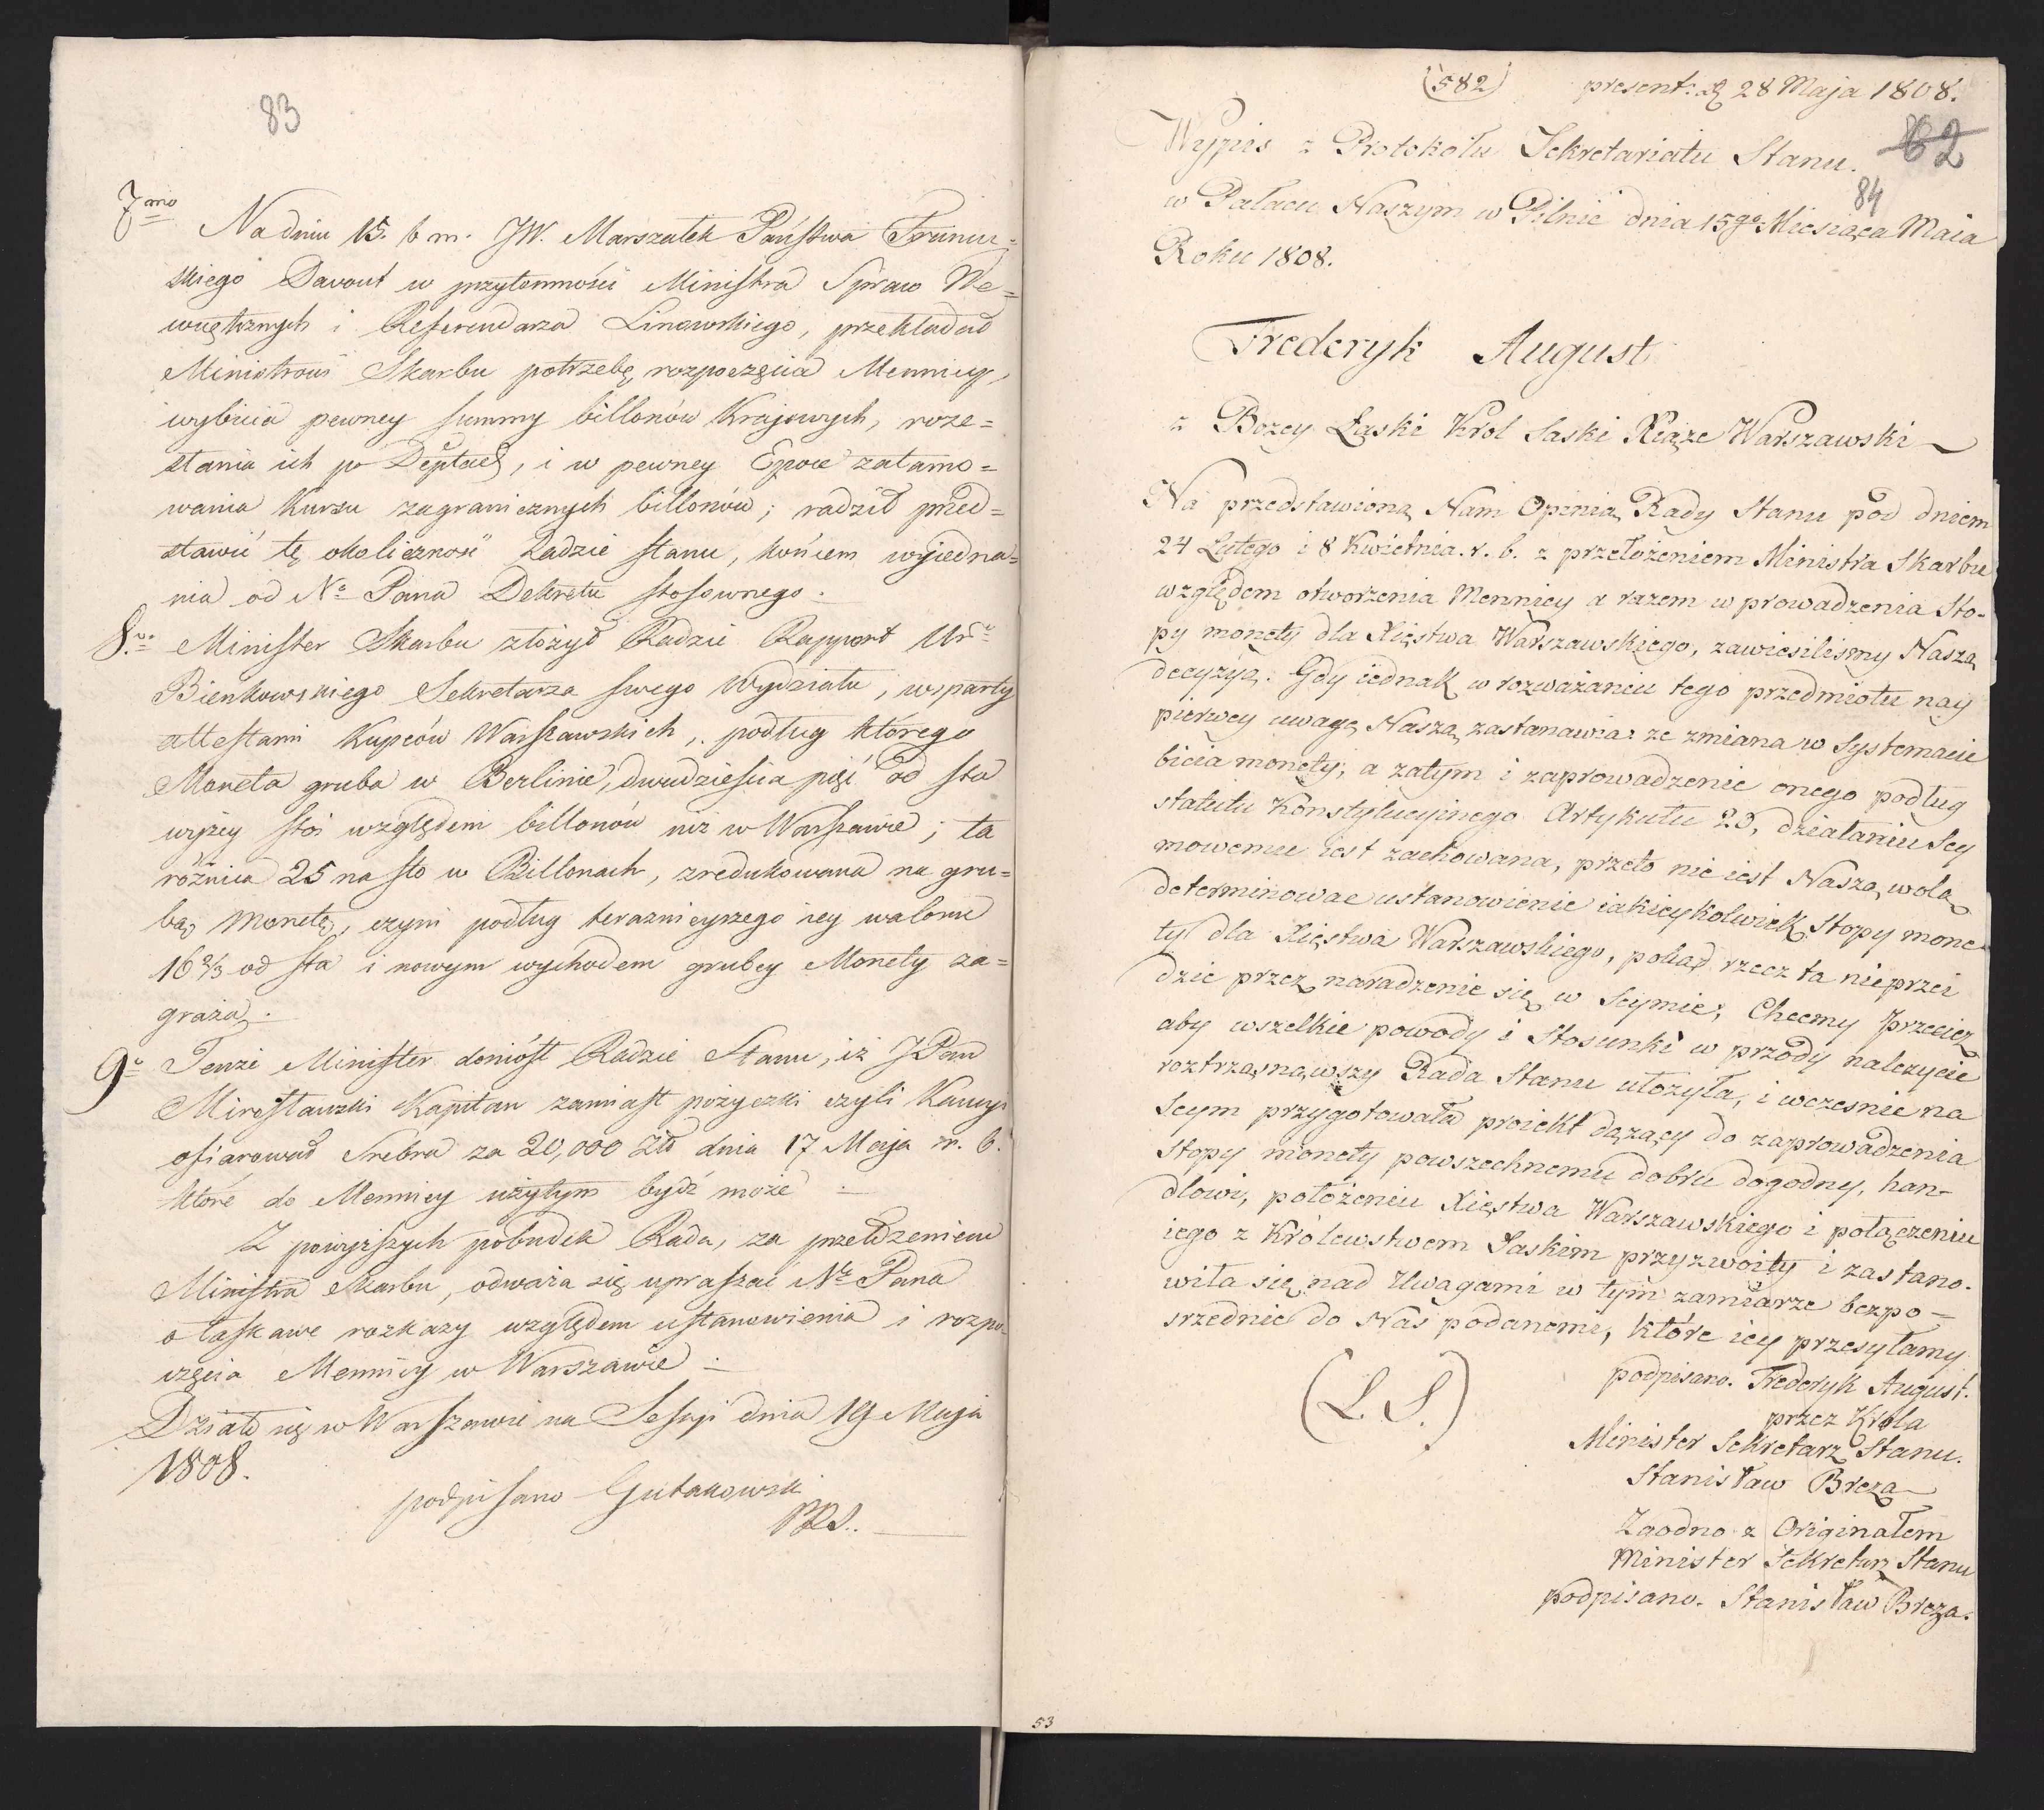 83
7mo Na dniu 15. b m. JW. Marszałek Państwa Francu=
skiego Davout w przytomności Ministra Spraw We=
wnętrznych i Referendarza Linowskiego, przekładał
Ministrowi Skarbu potrzebę rozpoczęcia Mennicy,
wybicia pewney summy billonów Krajowych, roze=
słania ich po Deptach, i w pewney Epoce zatamo=
wania Kursu zagranicznych billonów; radził przed=
stawić tę okoliczność Radzie Stanu, końcem wyjedna=
nia od No Pana Dekretu stosownego.
8vo Minister Skarbu złożył Radzie Rapport Uro
Bienkowskiego Sekretarza swego Wydziału, wsparty
attestami Kupców Warszawskich, podług którego
Moneta gruba w Berlinie, dwudziestia pięć od sta
wyżey stoi względem billonów niż w Warszawie; ta
różnica 25 na sto w Billonach, zredukowana na gru=
bą Monetę, czyni podług teraznieyszego iey waloru
16 2/3 od sta i nowym wychodem grubey Monety za=
graża.
9o Tenże Minister doniósł Radzie Stanu, iż JPan
Mirosławski Kapitan zamiast pożyczki czyli Kaucyi
ofiarował Srebra za 20,000 Zł dnia 17 Maja r. b.
które do Mennicy użytym bydź może
Z powyższych pobudek Rada, za przełożeniem
Ministra Skarbu, odważa się upraszać No Pana
o łaskawe rozkazy względem ustanowienia i rozpo=
częcia Mennicy w Warszawie
Działo się w Warszawie na Sessyi dnia 19 Maja
1808.
podpisano Gutakowski
PRS.
(582) present: d 28 Maja 1808.
62
Wypis z Protokołu Sekretariatu Stanu.
84
w Pałacu Naszym w Pilnic dnia 15go Miesiąca Maia
Roku 1808.
Frederyk August
z Bozey Łaski Krol Saski Xiąze Warszawski
Na przedstawioną Nam Opinią Rady Stanu pod dniem
24 Lutego i 8 Kwietnia. r. b. z przełożeniem Ministra Skarbu
względem otworzenia Mennicy a razem w prowadzenia Sto-
py monety dla Xięstwa Warszawskiego, zawiesilismy Naszą
decyzyą. Gdy iednak w rozważaniu tego przedmiotu nay
pierwey uwagę Naszą zastanawia: ze zmiana w Systemacie
bicia monety, a zatym i zaprowadzenie onego podług
statutu Konstytucyinego Artykułu 29, działaniu Sey
mowemu iest zachowana, przeto nie iest Naszą wolą
determinowac ustanowienie iakieykolwiek Stopy mone
ty dla Xięstwa Warszawskiego, pokąd rzecz ta nieprzei
dzie przez naradzenie się w Seymie; Chcemy przecież
aby wszelkie powody i Stosunki w przódy nalezycie
roztrząsnąwszy Rada Stanu ułozyła, i wczesnie na
Seym przygotowała proiekt dążący do zaprowadzenia
Stopy monety powszechnemu dobru dogodny, han-
dlowi, położeniu Xięstwa Warszawskiego i połączeniu
iego z Królewstwem Saskim przyzwoity i zastano-
wiła się nad Uwagami w tym zamiarze bezpo-
srzednie do Nas podanemi, które iey przesyłamy.
podpisano. Frederyk August.
(L. S.)
przez Króla
Minister Sekretarz Stanu.
Stanisław Breza
Zgodno z Originałem
Minister Sekretarz Stanu
podpisano. Stanisław Breza.
53